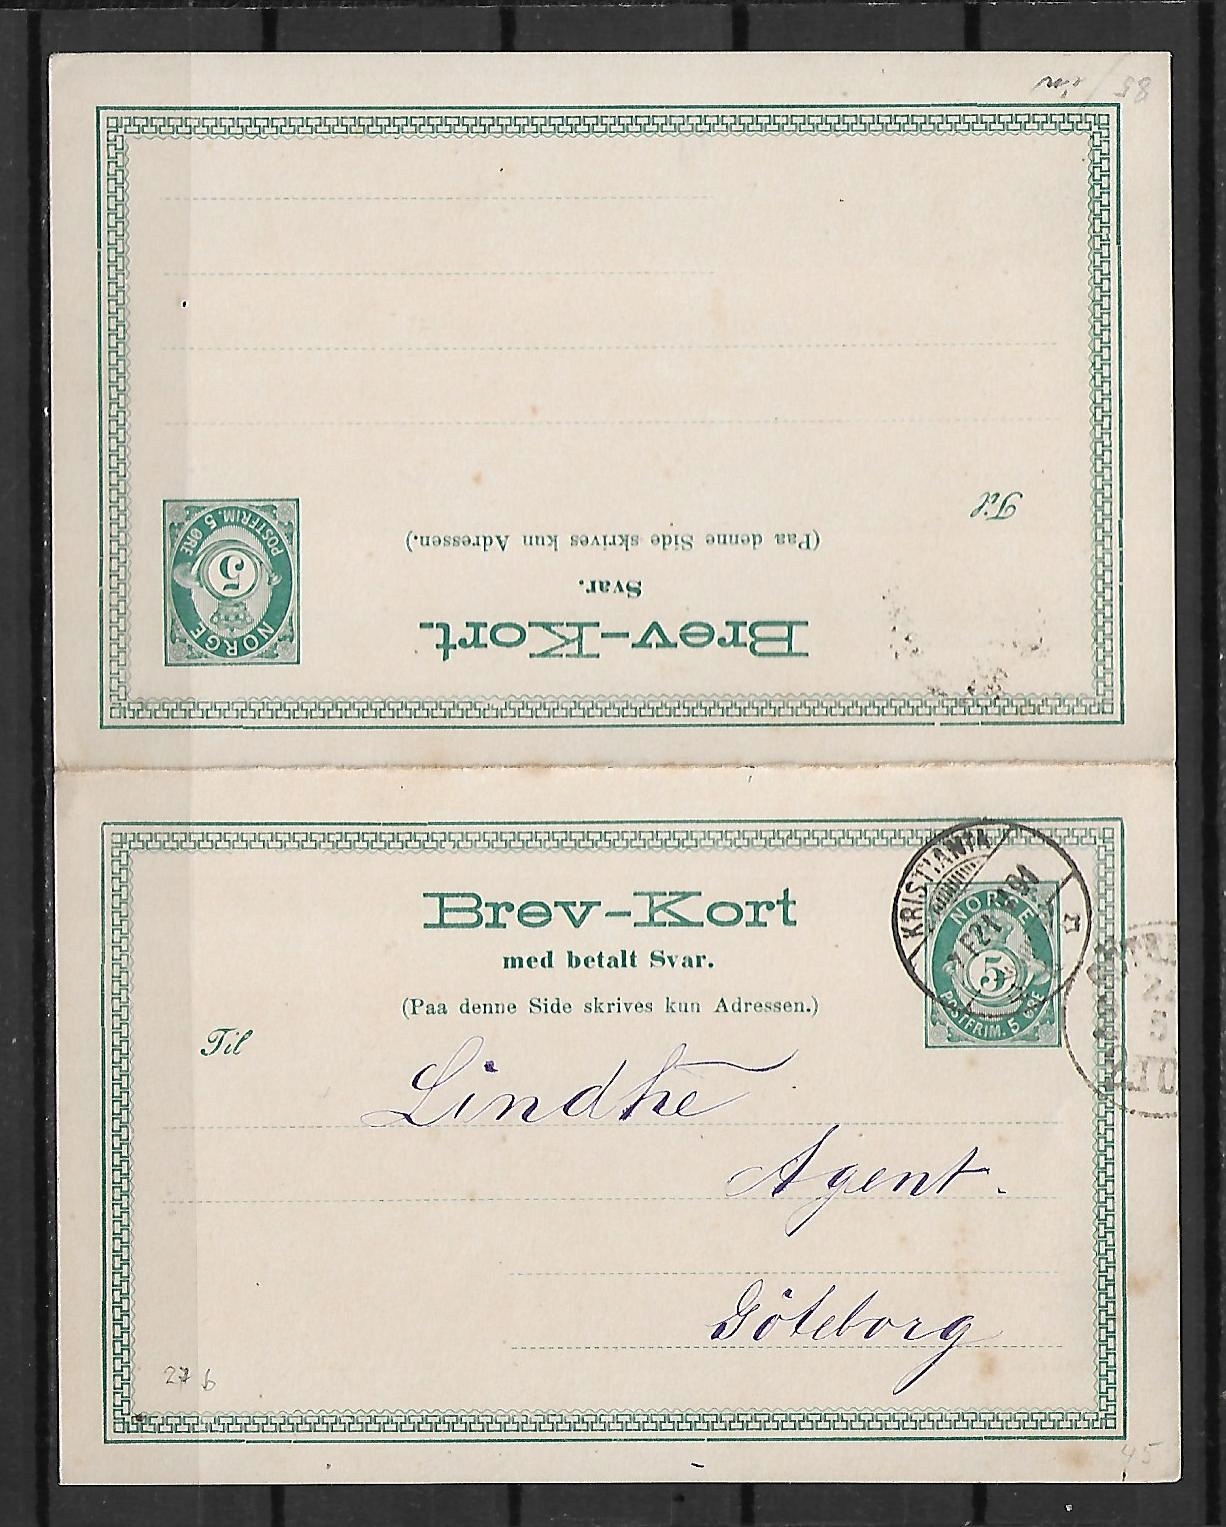 85
Til
(Paa denne Side skrives kun Adressen.)
Svar.
Brev-Kort.
NORGE
5
POSTFRIM. 5 ØRE
Brev-Kort
med betalt Svar.
(Paa denne Side skrives kun Adressen.)
KRISTIANIA
NORGE
5
POSTFRIM. 5 ØRE
Til
Lindhe
Agent.
Göteborg
27 b
45